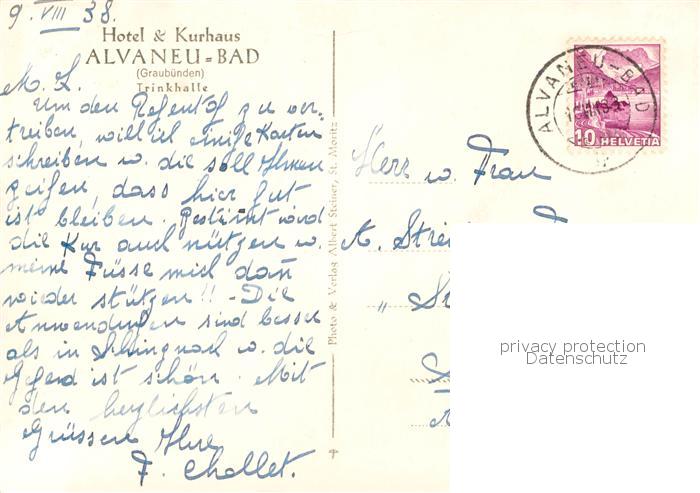 9. VIII 38.
Hotel & Kurhaus
ALVANEU=BAD
(Graubünden)
Trinkhalle
M. L.
Um den Regentag zu ver-
treiben, will ich einige Karten
schreiben u. die soll Ihnen
zeigen, dass hier gut
ist bleiben. Bestimmt wird
die Kur auch nützen u.
meine Füsse mich dan
wieder stützen!! - Die
Anwendungen sind besser
als in Schinznach u. die
Gegend ist schön. Mit
den herzlichsten
Grüssen Ihre
F. Chollet.
Photo & Verlag Albert Steiner, St. Moritz
ALVANEU-BAD
10 HELVETIA
Herr u. Frau
A.
privacy protection
Datenschutz